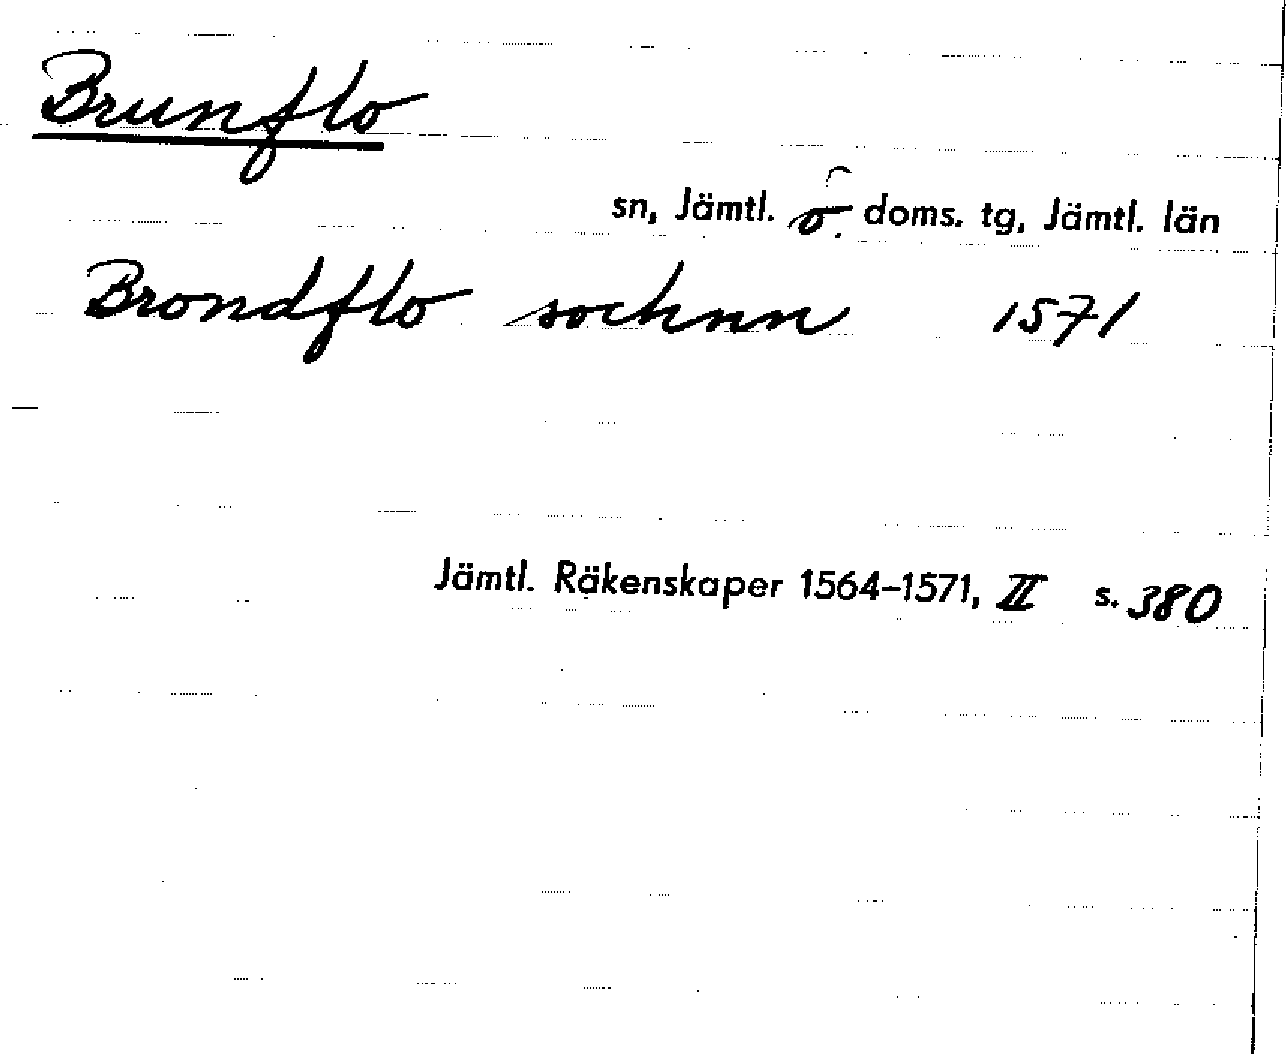 Brunflo
sn, Jämtl. ö. doms. tg, Jämtl. län
Brondflo socknn 1571
Jämtl. Räkenskaper 1564–1571, II s. 380